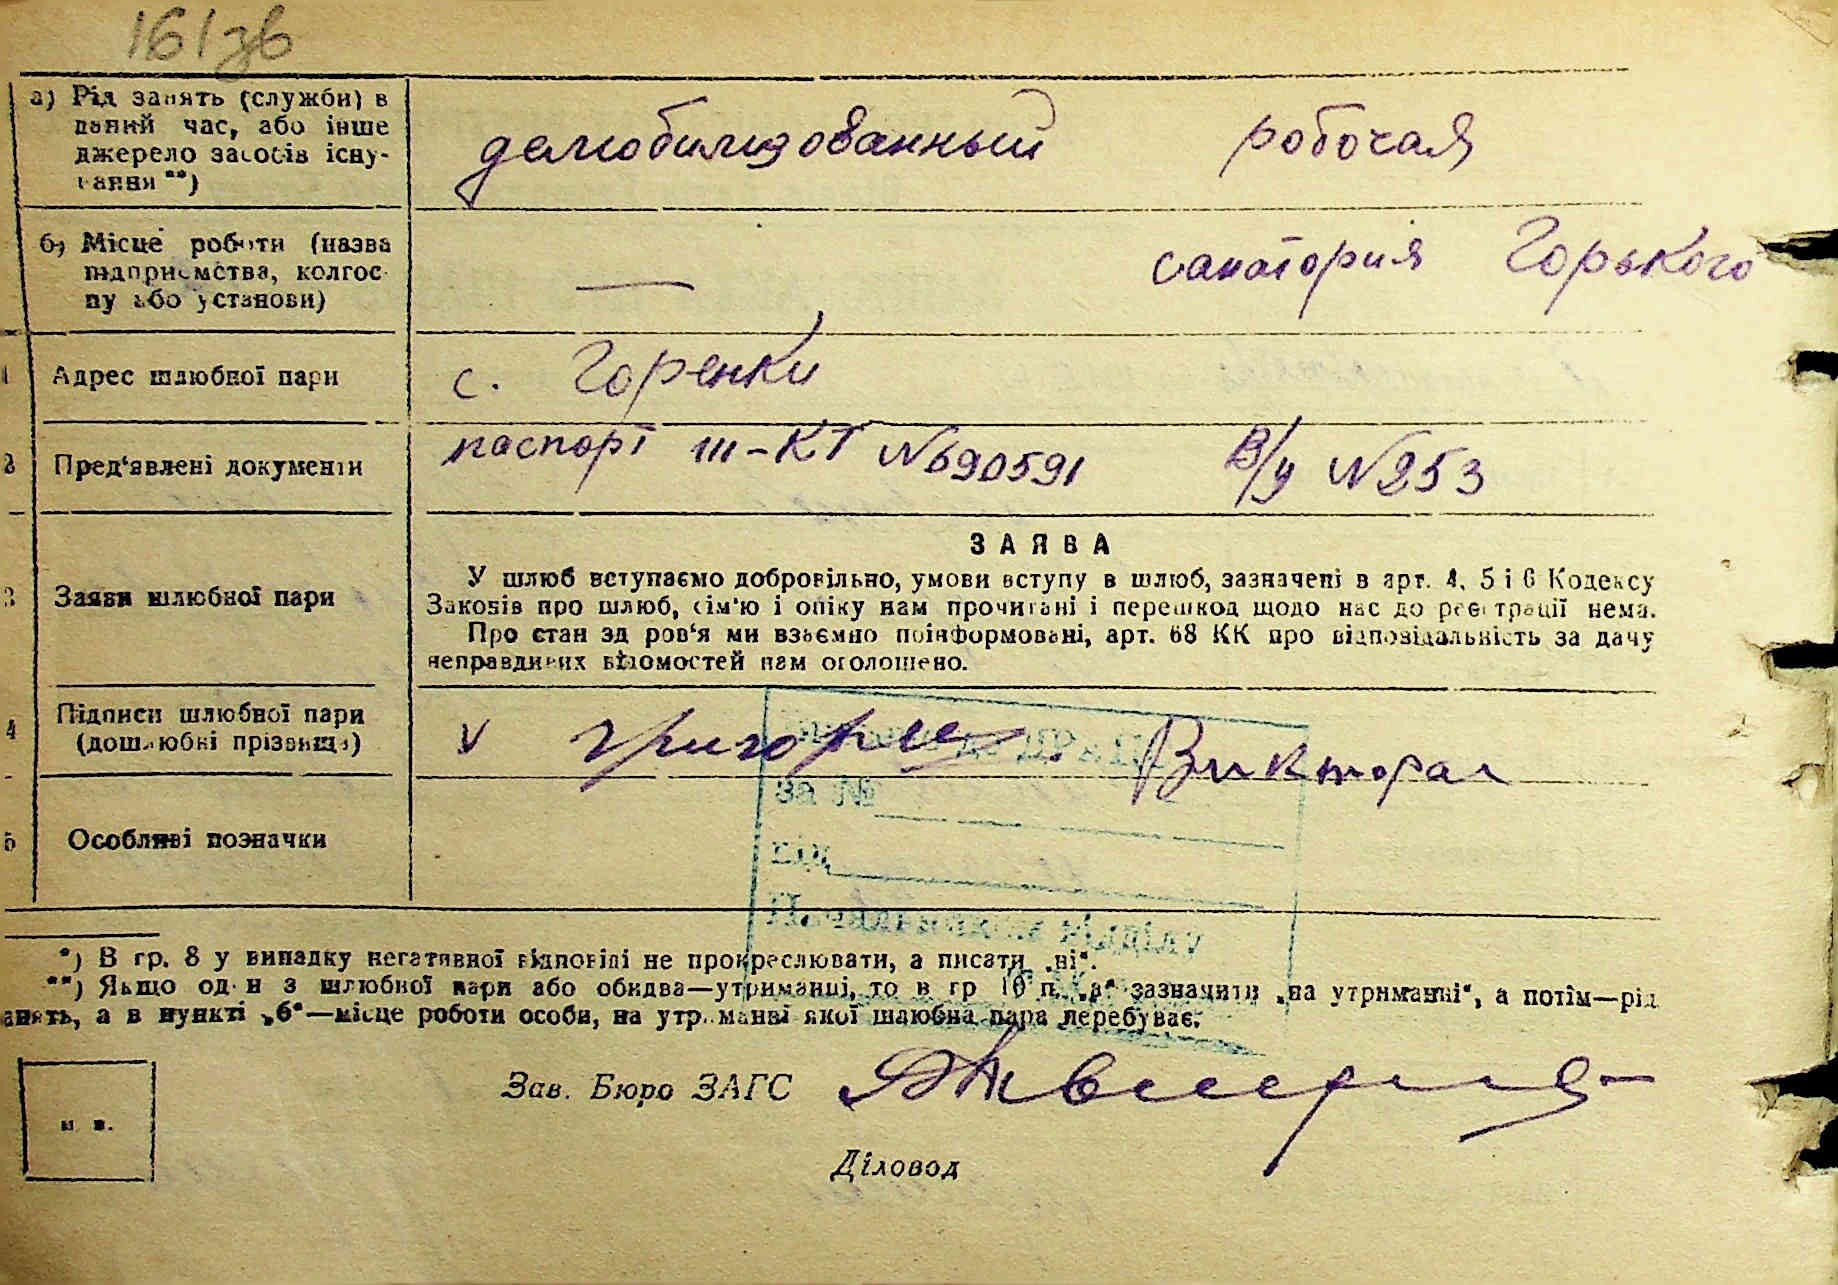 161зв
а) Рід занять (служби) в
даний час, або інше
джерело засобів існу-
вання **)
демобилизованный робочая
б) Місце роботи (назва
підприємства, колгос-
пу або установи)
— санатория Горького
1 Адрес шлюбної пари
с. Горенки
2 Пред'явлені документи
паспорт III-КТ №690591 В/у №253
ЗАЯВА
У шлюб вступаємо добровільно, умови вступу в шлюб, зазначені в арт. 4, 5 і 6 Кодексу
Законів про шлюб, сім'ю і опіку нам прочитані і перешкод щодо нас до реєстрації нема.
Про стан здоров'я ми взаємно поінформовані, арт. 68 КК про відповідальність за дачу
неправдивих відомостей нам оголошено.
3 Заяви шлюбної пари
4 Підписи шлюбної пари
(дошлюбні прізвища)
v Викторал
за №
від
5 Особливі позначки
*) В гр. 8 у випадку негативної відповіді не прокреслювати, а писати „ні“.
**) Якщо один з шлюбної пари або обидва—утриманці, то в гр 10 п. „а“ зазначити „на утриманні“, а потім—рід
анять, а в пункті „б“—місце роботи особи, на утриманні якої шлюбна пара перебуває.
Зав. Бюро ЗАГС
м. п.
Діловод